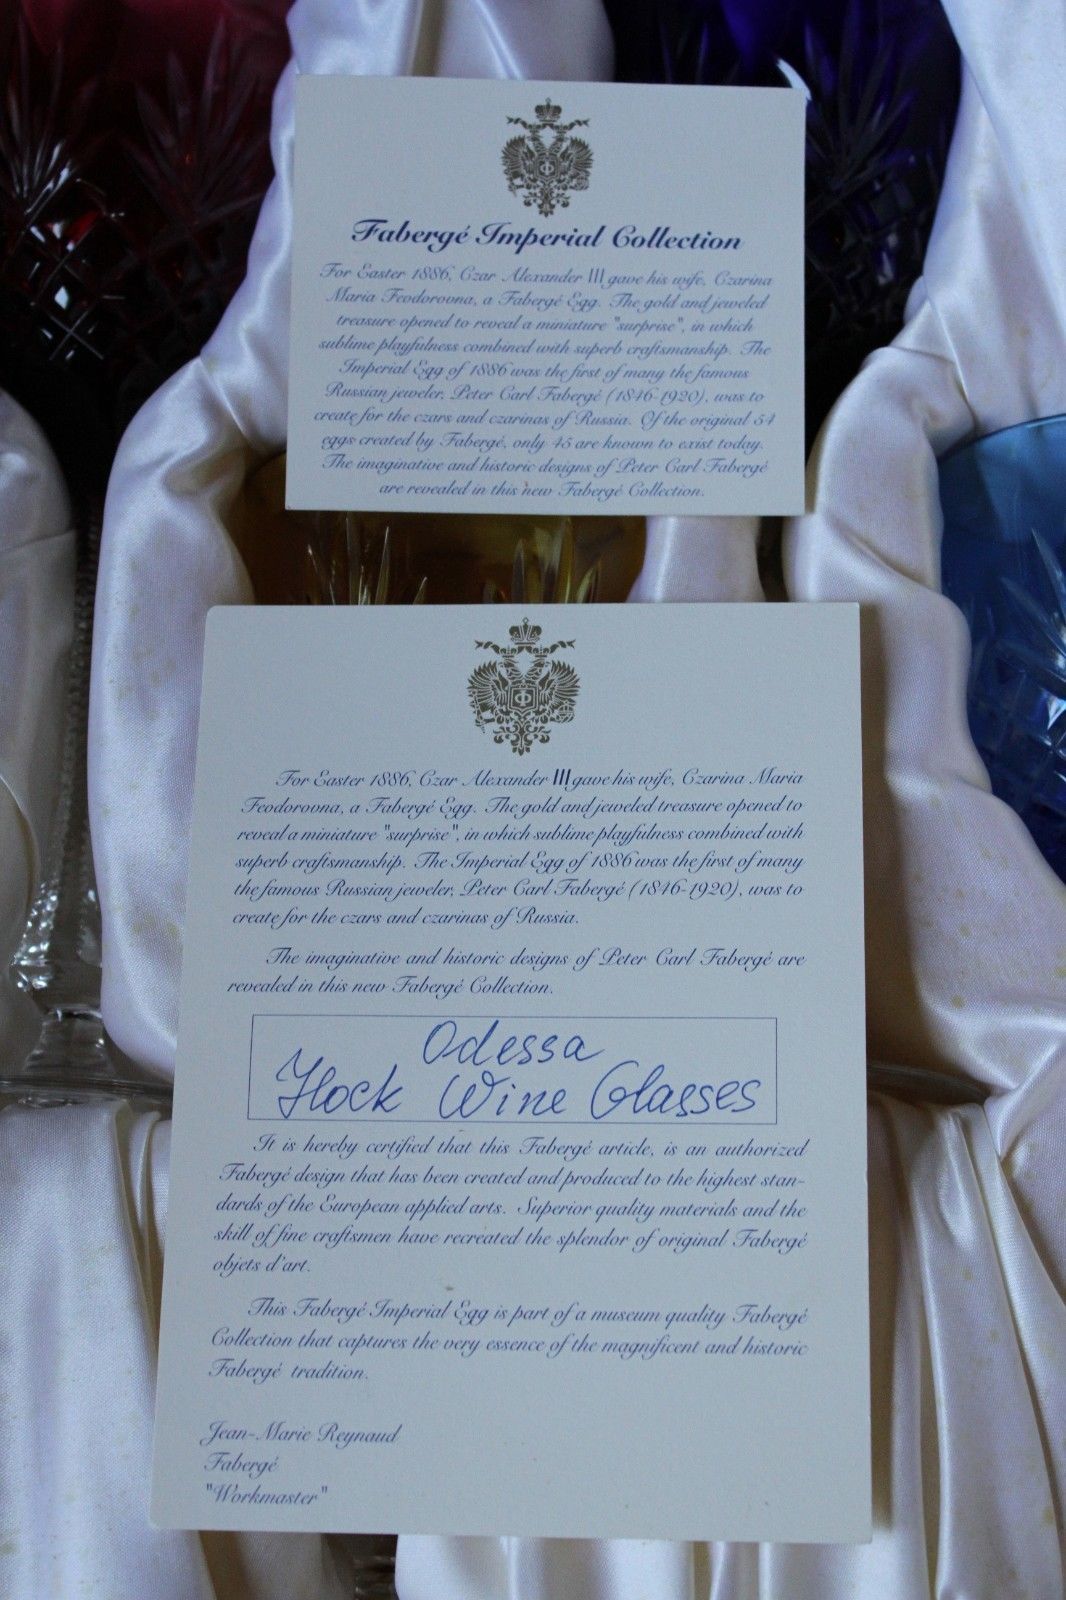 Fabergé Imperial Collection
For Easter 1886, Czar Alexander III gave his wife, Czarina
Maria Feodorovna, a Fabergé Egg. The gold and jeweled
treasure opened to reveal a miniature "surprise", in which
sublime playfulness combined with superb craftsmanship. The
Imperial Egg of 1886 was the first of many the famous
Russian jeweler, Peter Carl Fabergé (1846-1920), was to
create for the czars and czarinas of Russia. Of the original 54
eggs created by Fabergé, only 45 are known to exist today.
The imaginative and historic designs of Peter Carl Fabergé
are revealed in this new Fabergé Collection.
For Easter 1886, Czar Alexander III gave his wife, Czarina Maria
Feodorovna, a Fabergé Egg. The gold and jeweled treasure opened to
reveal a miniature "surprise", in which sublime playfulness combined with
superb craftsmanship. The Imperial Egg of 1886 was the first of many
the famous Russian jeweler, Peter Carl Fabergé (1846-1920), was to
create for the czars and czarinas of Russia.
The imaginative and historic designs of Peter Carl Fabergé are
revealed in this new Fabergé Collection.
Odessa
Hock Wine Glasses
It is hereby certified that this Fabergé article, is an authorized
Fabergé design that has been created and produced to the highest stan-
dards of the European applied arts. Superior quality materials and the
skill of fine craftsmen have recreated the splendor of original Fabergé
objets d'art.
This Fabergé Imperial Egg is part of a museum quality Fabergé
Collection that captures the very essence of the magnificent and historic
Fabergé tradition.
Jean-Marie Reynaud
Fabergé
"Workmaster"